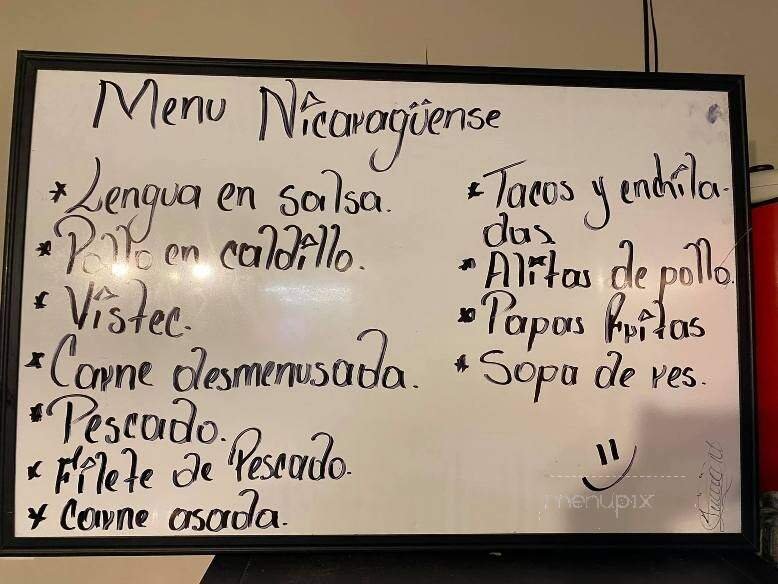 Menu Nicaragüense
* Lengua en salsa.
* Pollo en caldillo.
* Vistec.
* Carne desmenusada.
* Pescado.
* Filete de Pescado.
* Carne asada.
* Tacos y enchila-
das
* Alitas de pollo.
* Papas fritas
* Sopa de res.
menupix